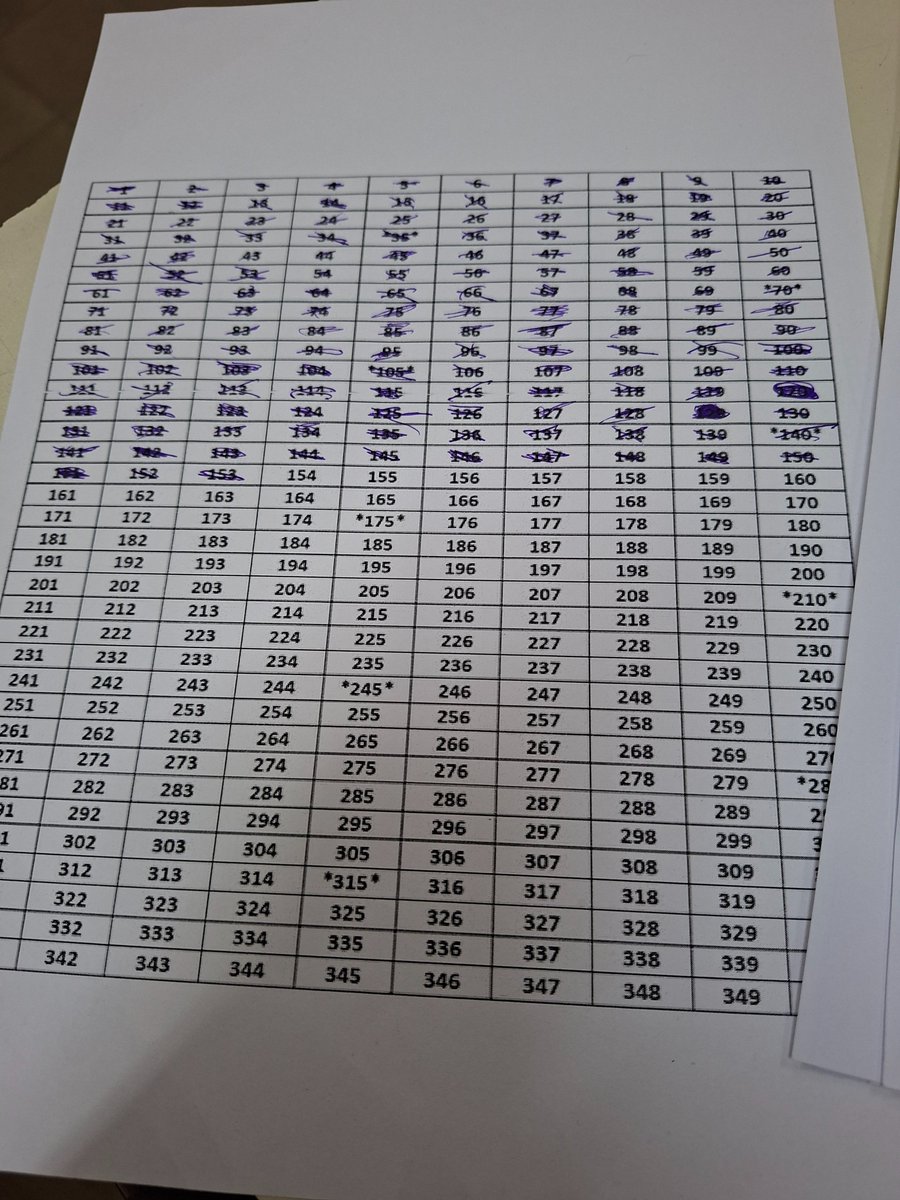 1 2 3 4 5 6 7 8 9 10
11 12 13 14 15 16 17 18 19 20
21 22 23 24 25 26 27 28 29 30
31 32 33 34 *35* 36 37 38 39 40
41 42 43 44 45 46 47 48 49 50
51 52 53 54 55 56 57 58 59 60
61 62 63 64 65 66 67 68 69 *70*
71 72 73 74 75 76 77 78 79 80
81 82 83 84 85 86 87 88 89 90
91 92 93 94 95 96 97 98 99 100
101 102 103 104 *105* 106 107 108 109 110
111 112 113 114 115 116 117 118 119 120
121 122 123 124 125 126 127 128 130
131 132 133 134 135 136 137 138 139 *140*
141 142 143 144 145 146 147 148 149 150
151 152 153 154 155 156 157 158 159 160
161 162 163 164 165 166 167 168 169 170
171 172 173 174 *175* 176 177 178 179 180
181 182 183 184 185 186 187 188 189 190
191 192 193 194 195 196 197 198 199 200
201 202 203 204 205 206 207 208 209 *210*
211 212 213 214 215 216 217 218 219 220
221 222 223 224 225 226 227 228 229 230
231 232 233 234 235 236 237 238 239 240
241 242 243 244 *245* 246 247 248 249 250
251 252 253 254 255 256 257 258 259 260
261 262 263 264 265 266 267 268 269 27
271 272 273 274 275 276 277 278 279 *28
81 282 283 284 285 286 287 288 289 2
91 292 293 294 295 296 297 298 299 3
1 302 303 304 305 306 307 308 309
1 312 313 314 *315* 316 317 318 319
322 323 324 325 326 327 328 329
332 333 334 335 336 337 338 339
342 343 344 345 346 347 348 349